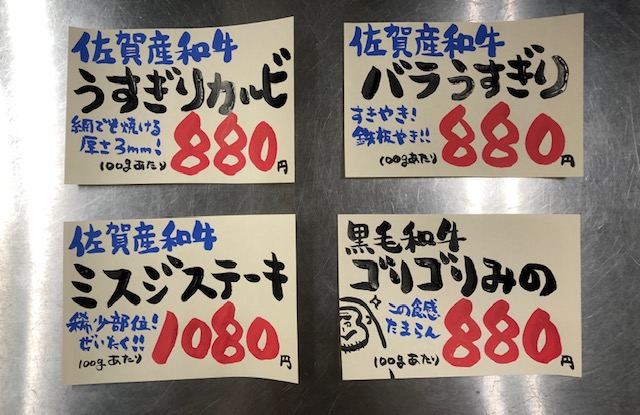 佐賀産和牛
うすぎりカルビ
網でも焼ける
厚さ3mm!
100gあたり 880円
佐賀産和牛
バラうすぎり
すきやき!
鉄板やき!!
100gあたり 880円
佐賀産和牛
ミスジステーキ
稀少部位!
ぜいたく!!
100gあたり 1080円
黒毛和牛
ゴリゴリみの
この食感
たまらん
100gあたり 880円